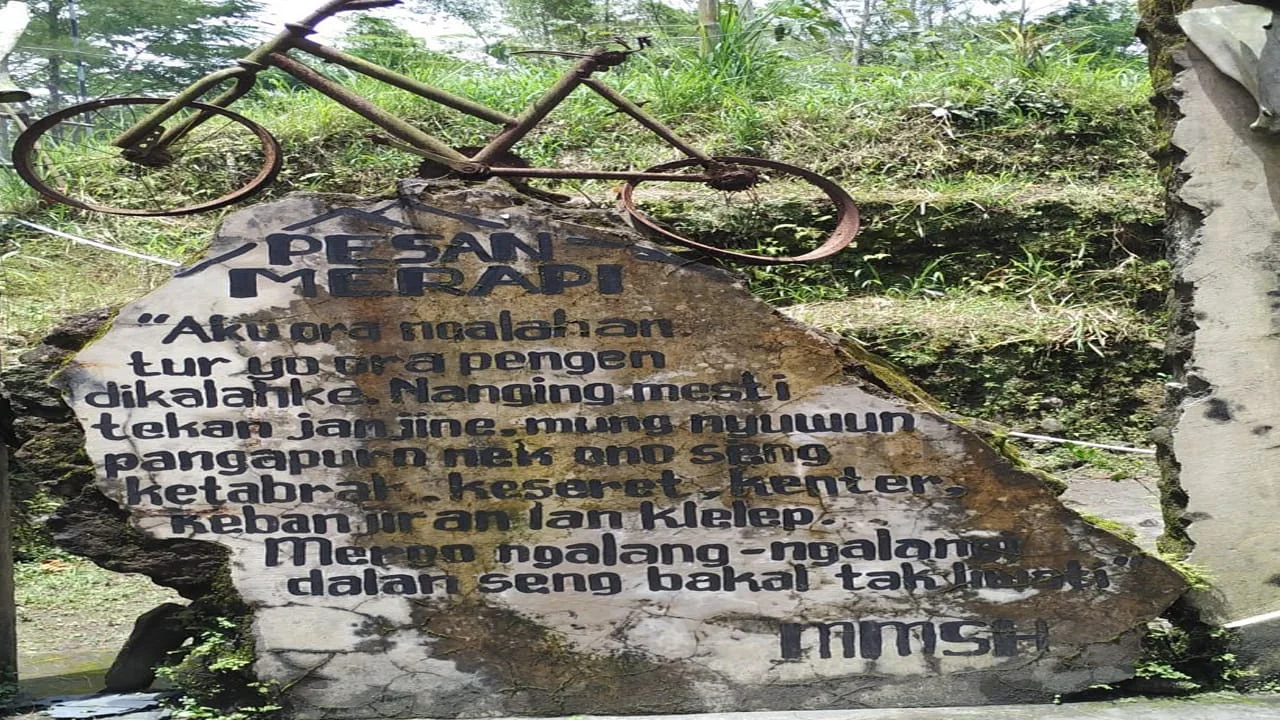 PESAN
MERAPI
"Aku ora ngalahan
tur yo ora pengen
dikalahke. Nanging mesti
tekan janjine. mung nyuwun
pangapuro nek ono seng
ketabrak, keseret, kenter,
kebanjiran lan klelep.
Mergo ngalang-ngalangi
dalan seng bakal tak liwati"
MMSH